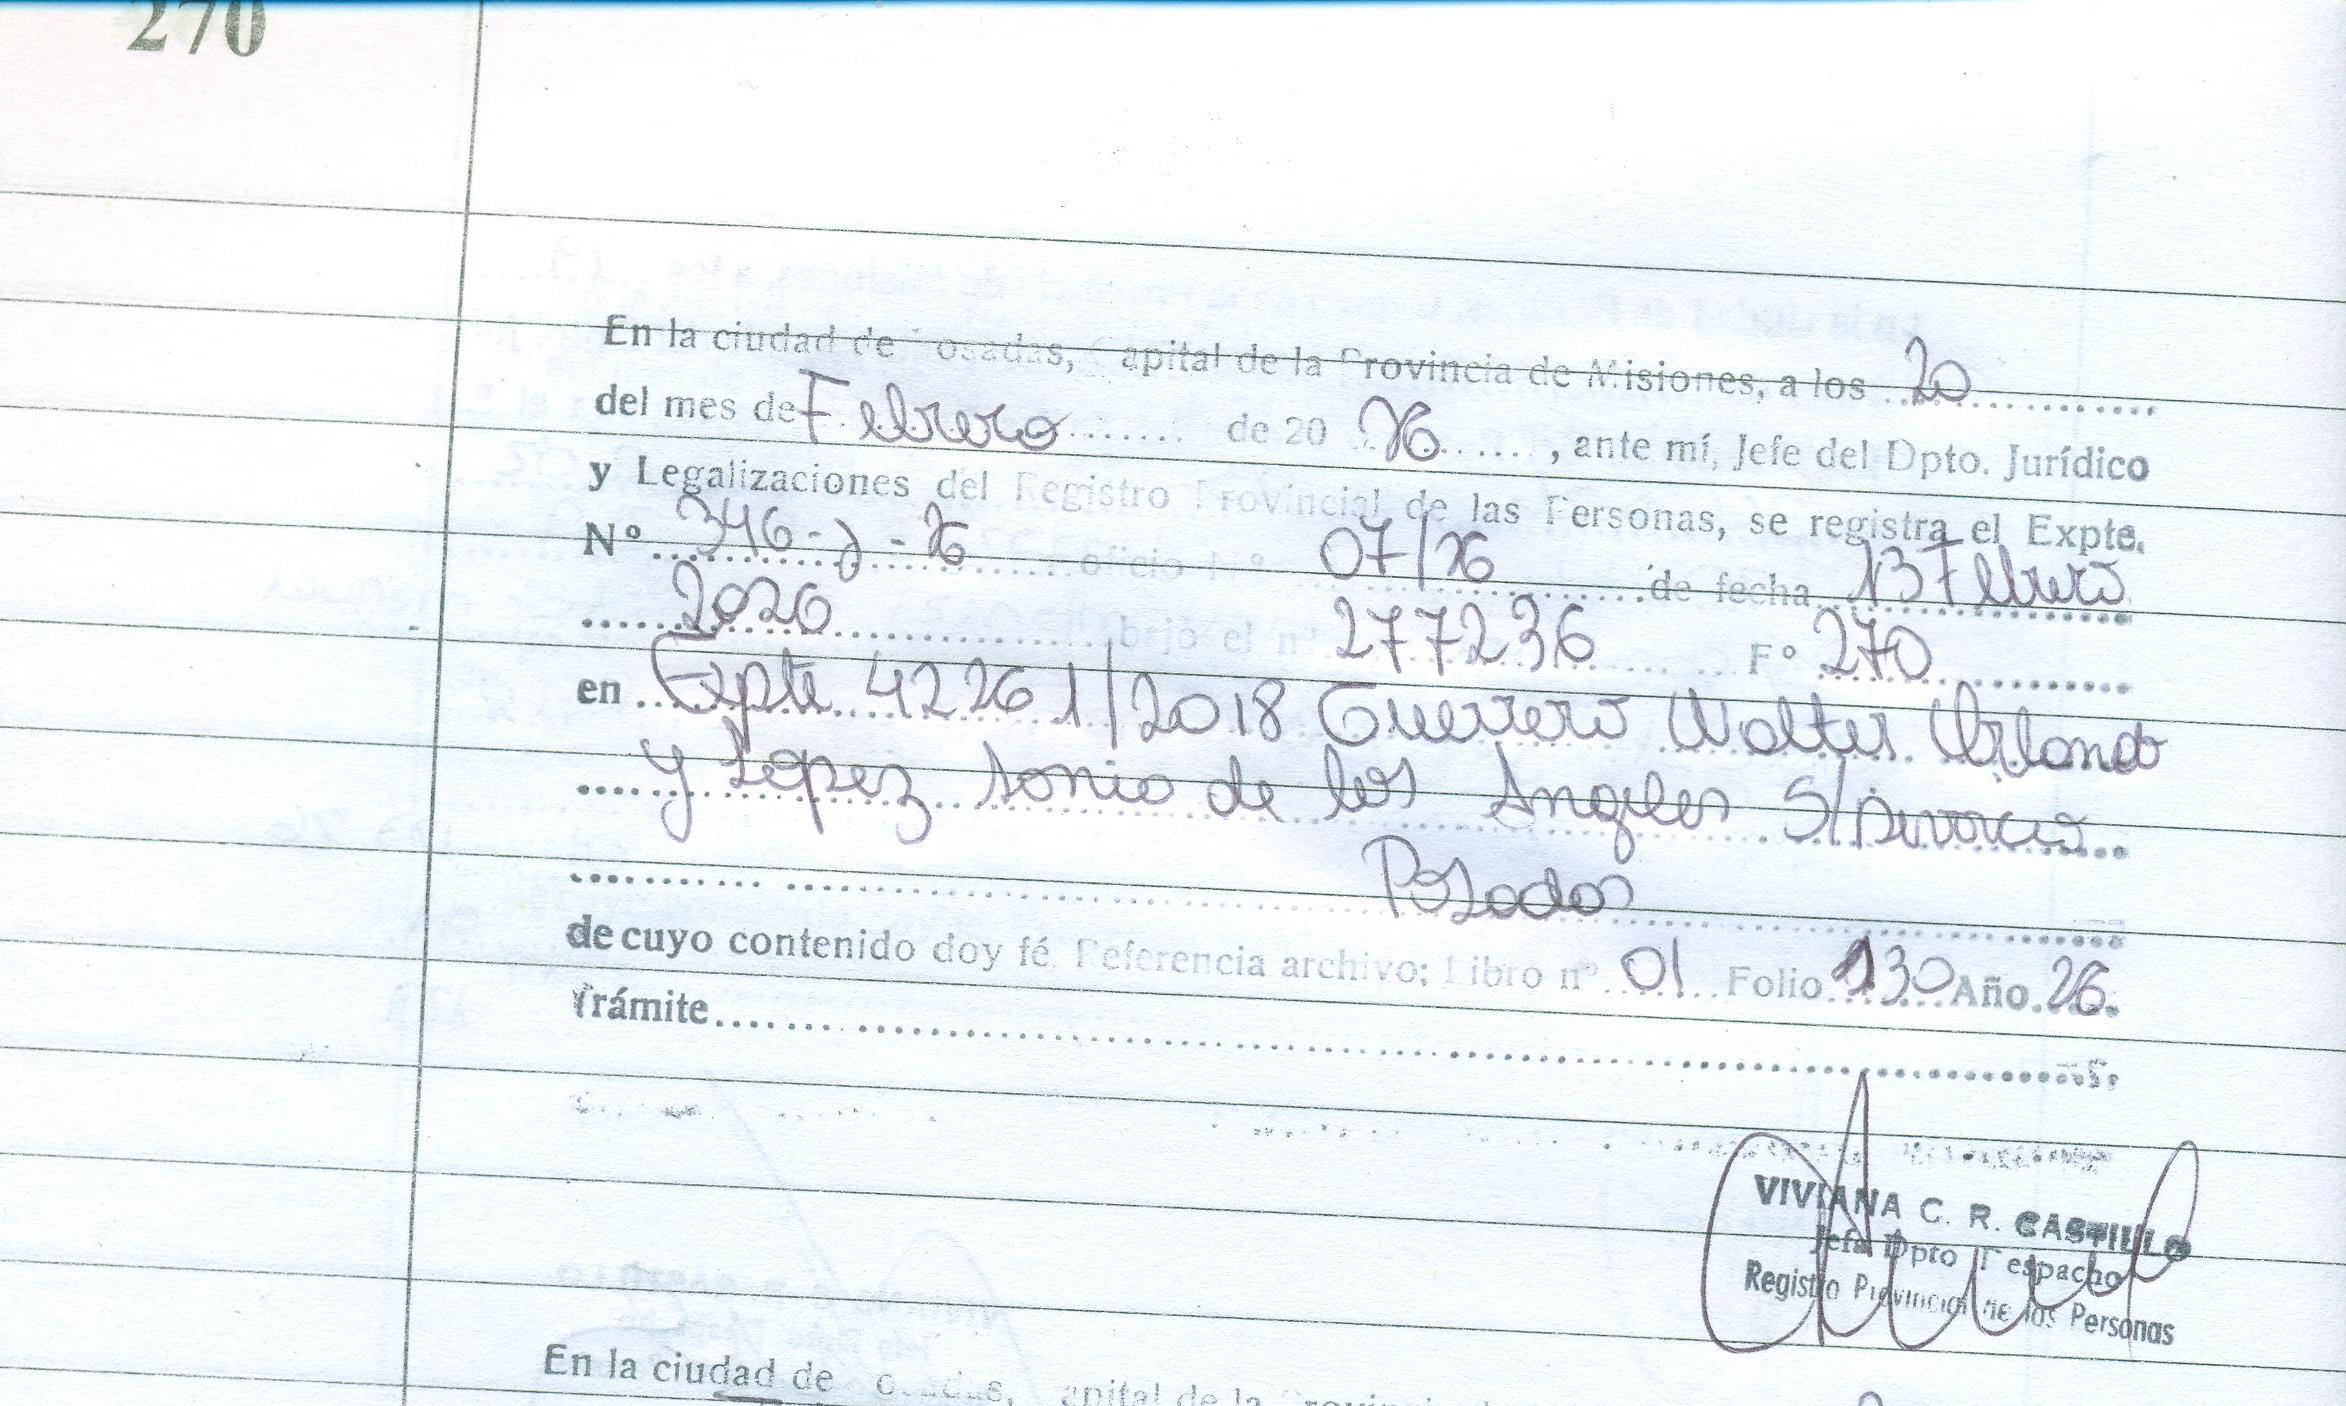 270
En la ciudad de Posadas, Capital de la Provincia de Misiones, a los 20
del mes de Febrero de 20 26, ante mí, Jefe del Dpto. Jurídico
y Legalizaciones del Registro Provincial de las Personas, se registra el Expte.
Nº 346-J-26 oficio Nº 07/26 de fecha 13 Febrero
2026 bajo el nº 277236 Fº 270
en Expte 42261/2018 Guerrero Walter Orlando
y Lopez Sonia de los Angeles S/Divorcio
Posadas
de cuyo contenido doy fé. Referencia archivo: Libro nº 01 Folio 130 Año 26.
Trámite
VIVIANA C. R. CASTILLO
Jefa Dpto Despacho
Registro Provincial de las Personas
En la ciudad de Posadas, Capital de la Provincia